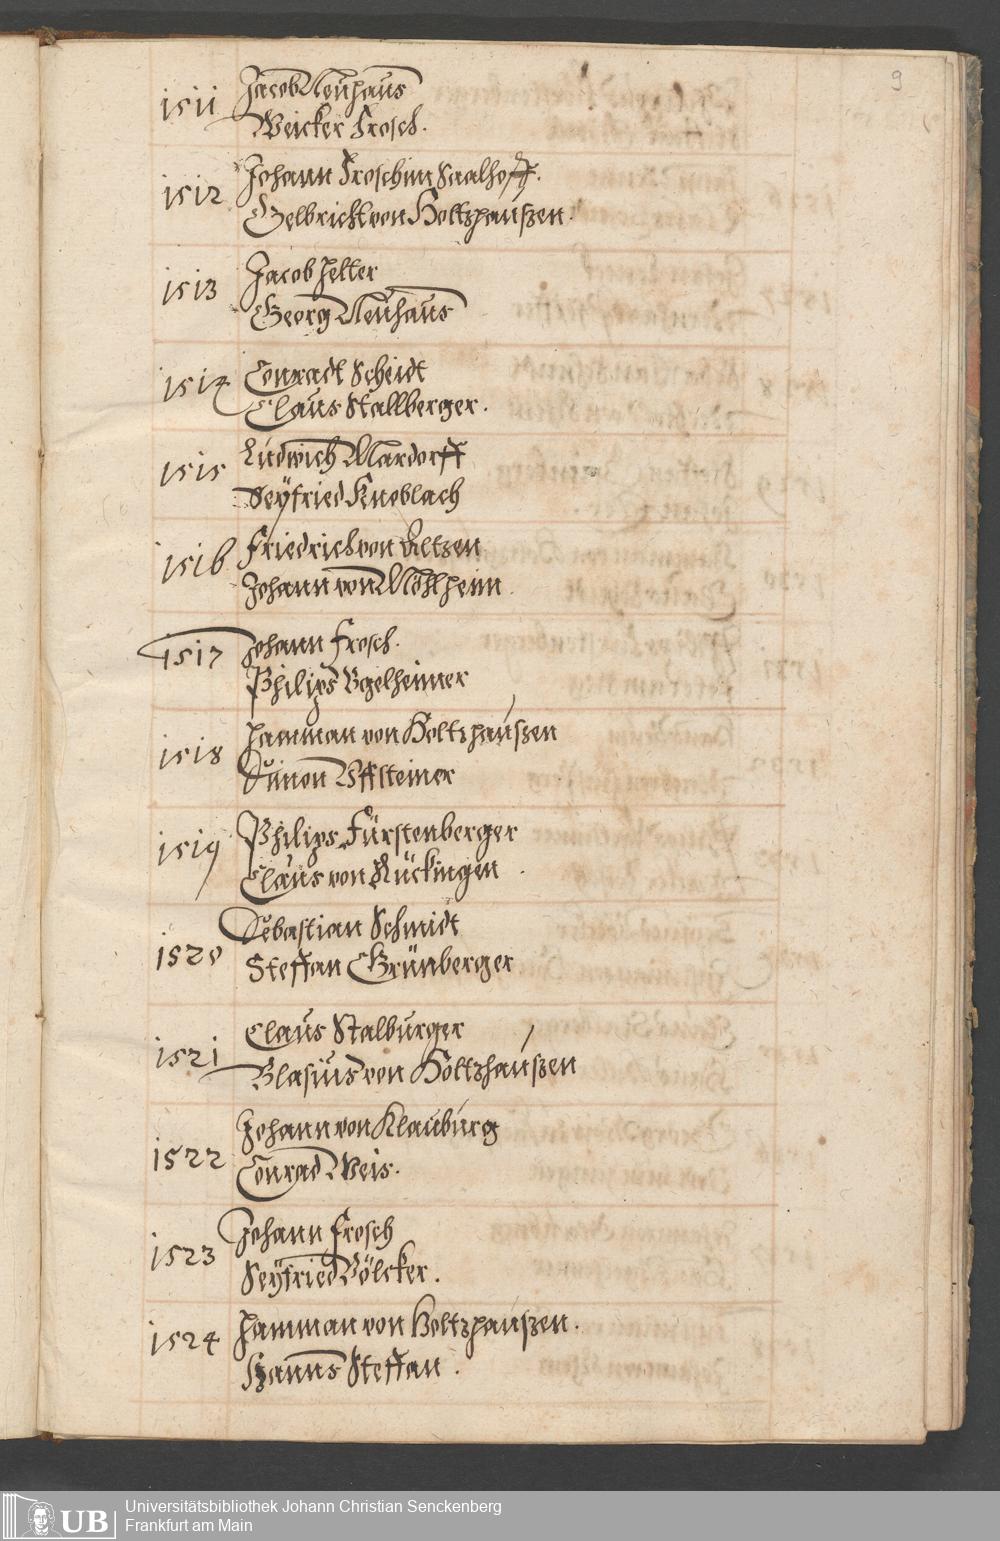 9
1511 Jacob Neuhaus
Weicker Frosch.
1512 Johann Frosch im Saalhoff.
Gelbricht von Holtzhaußen.
1513 Jacob Heller
Georg Neuhaus
1514 Conradt Scheidt
Claus Stallberger.
1515 Ludwich Mardorff
Seyfried Knoblach
1516 Friedrich von Altzen
Johann von
1517 Johann Frosch.
Philips Vgelheimer
1518 Hamman von Holtzhaußen
Simon Vffsteiner
1519 Philips Fürstenberger
Claus von Rückingen
1520 Sebastian Schmidt
Steffan Grünberger
1521 Claus Stalburger
Blasius von Holtzhaußen
1522 Johann von Klauburg
Conrad Weis.
1523 Johann Frosch
Seyfried Völcker.
1524 Hamman von Holtzhaußen.
Hanns Steffan.
UB
Universitätsbibliothek Johann Christian Senckenberg
Frankfurt am Main